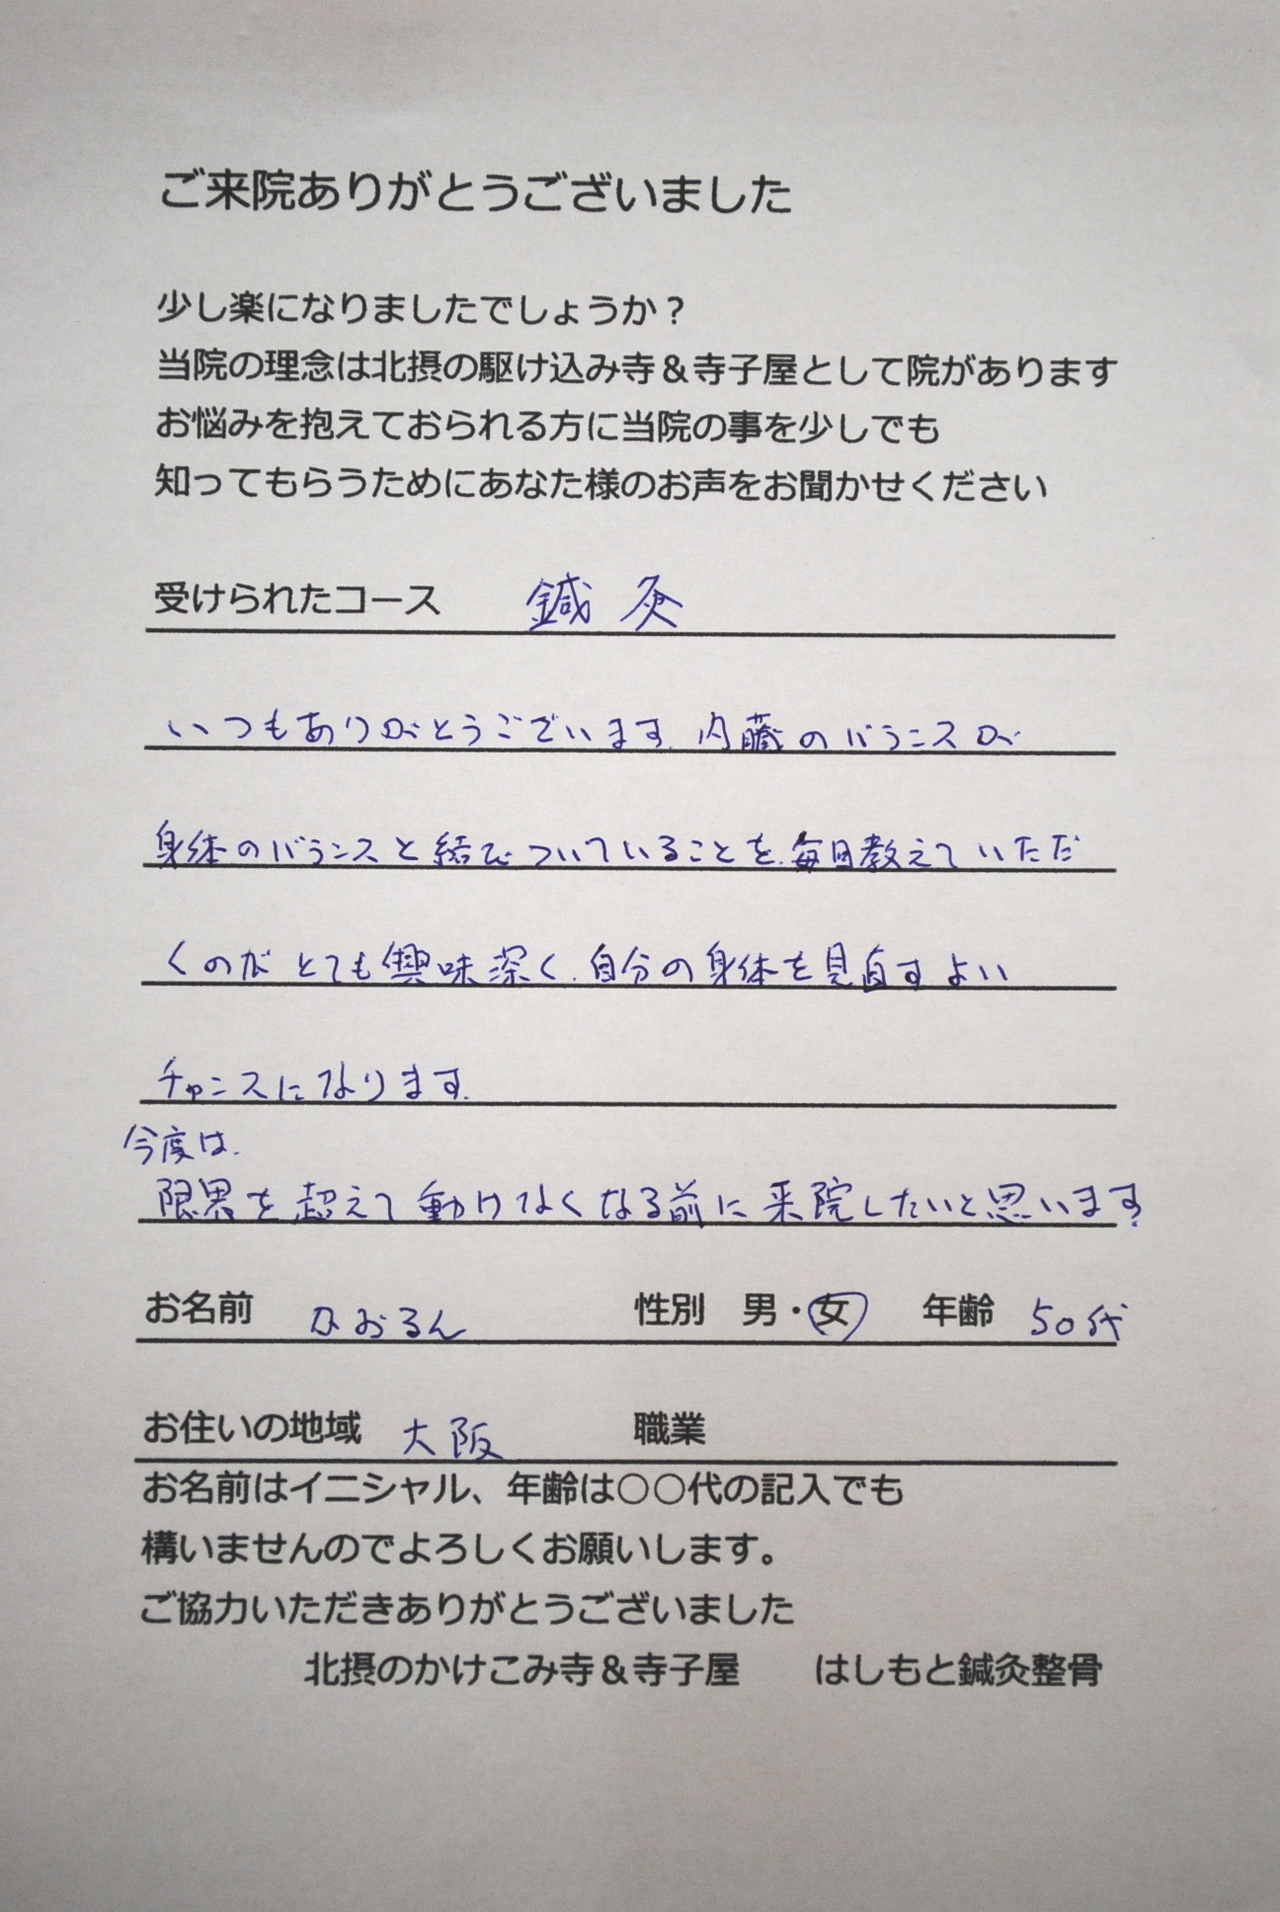 ご来院ありがとうございました
少し楽になりましたでしょうか？
当院の理念は北摂の駆け込み寺＆寺子屋として院があります
お悩みを抱えておられる方に当院の事を少しでも
知ってもらうためにあなた様のお声をお聞かせください
受けられたコース 鍼灸
いつもありがとうございます。内臓のバランスが
身体のバランスと結びついていることを、毎日教えていただ
くのがとても興味深く、自分の身体を見直すよい
チャンスになります。
今度は、
限界を超えて動けなくなる前に来院したいと思います。
お名前 なおるん 性別 男・女 年齢 50代
お住いの地域 大阪 職業
お名前はイニシャル、年齢は〇〇代の記入でも
構いませんのでよろしくお願いします。
ご協力いただきありがとうございました
北摂のかけこみ寺＆寺子屋 はしもと鍼灸整骨